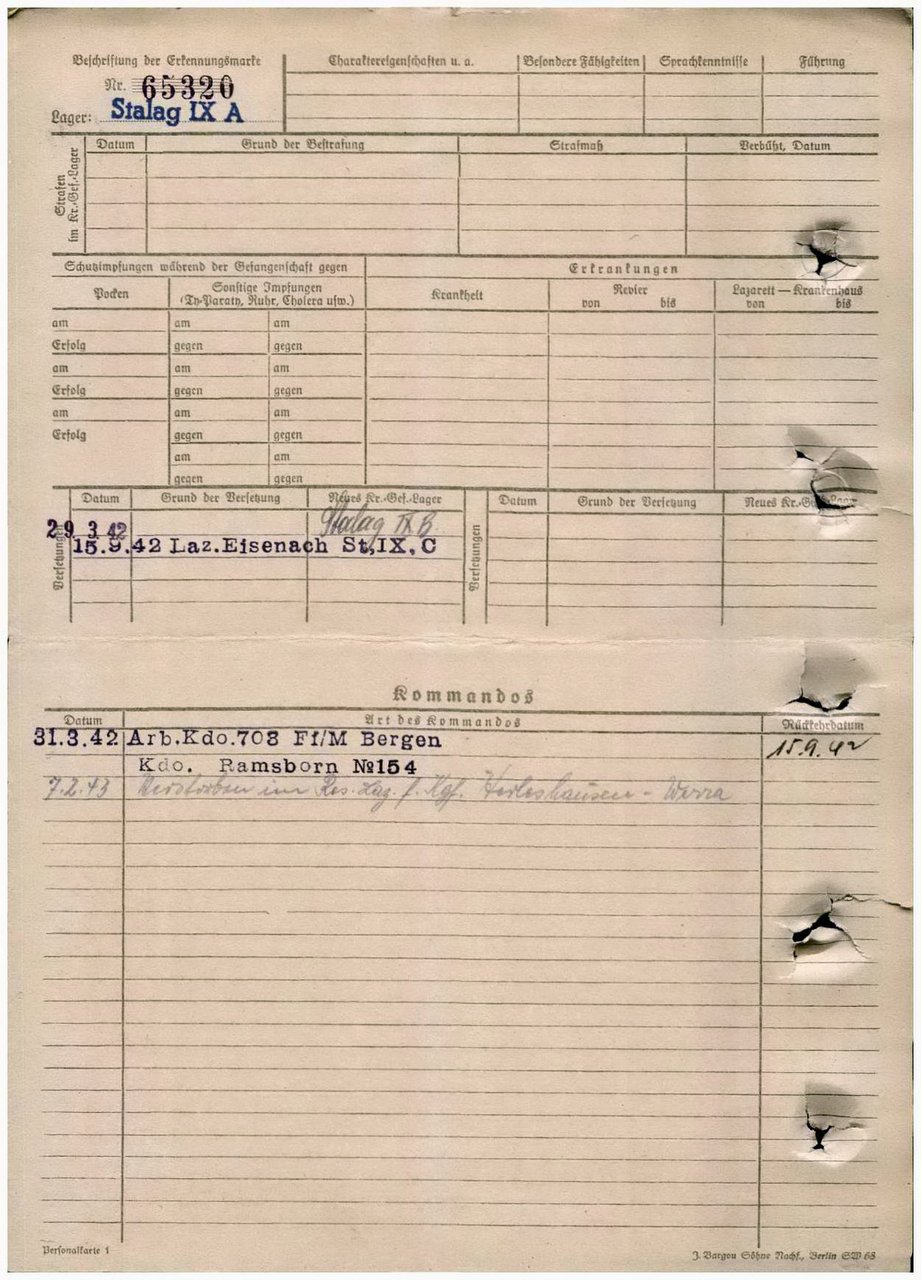 Beschriftung der Erkennungsmarke
Nr. 65320
Lager: Stalag IX A
Charaktereigenschaften u. a. Besondere Fähigkeiten Sprachkenntnisse Führung
Strafen im Kr.-Gef.-Lager
Datum Grund der Bestrafung Strafmaß Verbüßt, Datum
Schutzimpfungen während der Gefangenschaft gegen Erkrankungen
Pocken Sonstige Impfungen (Ty-Paraty, Ruhr, Cholera usw.) Krankheit Revier von bis Lazarett — Krankenhaus von bis
am am am
Erfolg gegen gegen
am am am
Erfolg gegen gegen
am am am
Erfolg gegen gegen
am am
gegen gegen
Versetzungen
Datum Grund der Versetzung Neues Kr.-Gef.-Lager
29. 3. 42 Stalag IX B.
15.9.42 Laz.Eisenach St,IX,C
Versetzungen
Datum Grund der Versetzung Neues Kr.-Gef.-Lager
Kommandos
Datum Art des Kommandos Rückkehrdatum
31.3.42 Arb.Kdo.703 Ff/M Bergen 15.9.42
Kdo. Ramsborn №154
7.2.43 Verstorben im Res. Laz. f. Kgf. Herleshausen - Werra
Personalkarte 1
J. Bargou Söhne Nachf., Berlin SW 68